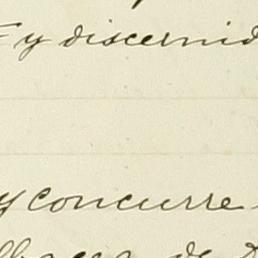 y discernid
y concurre
de